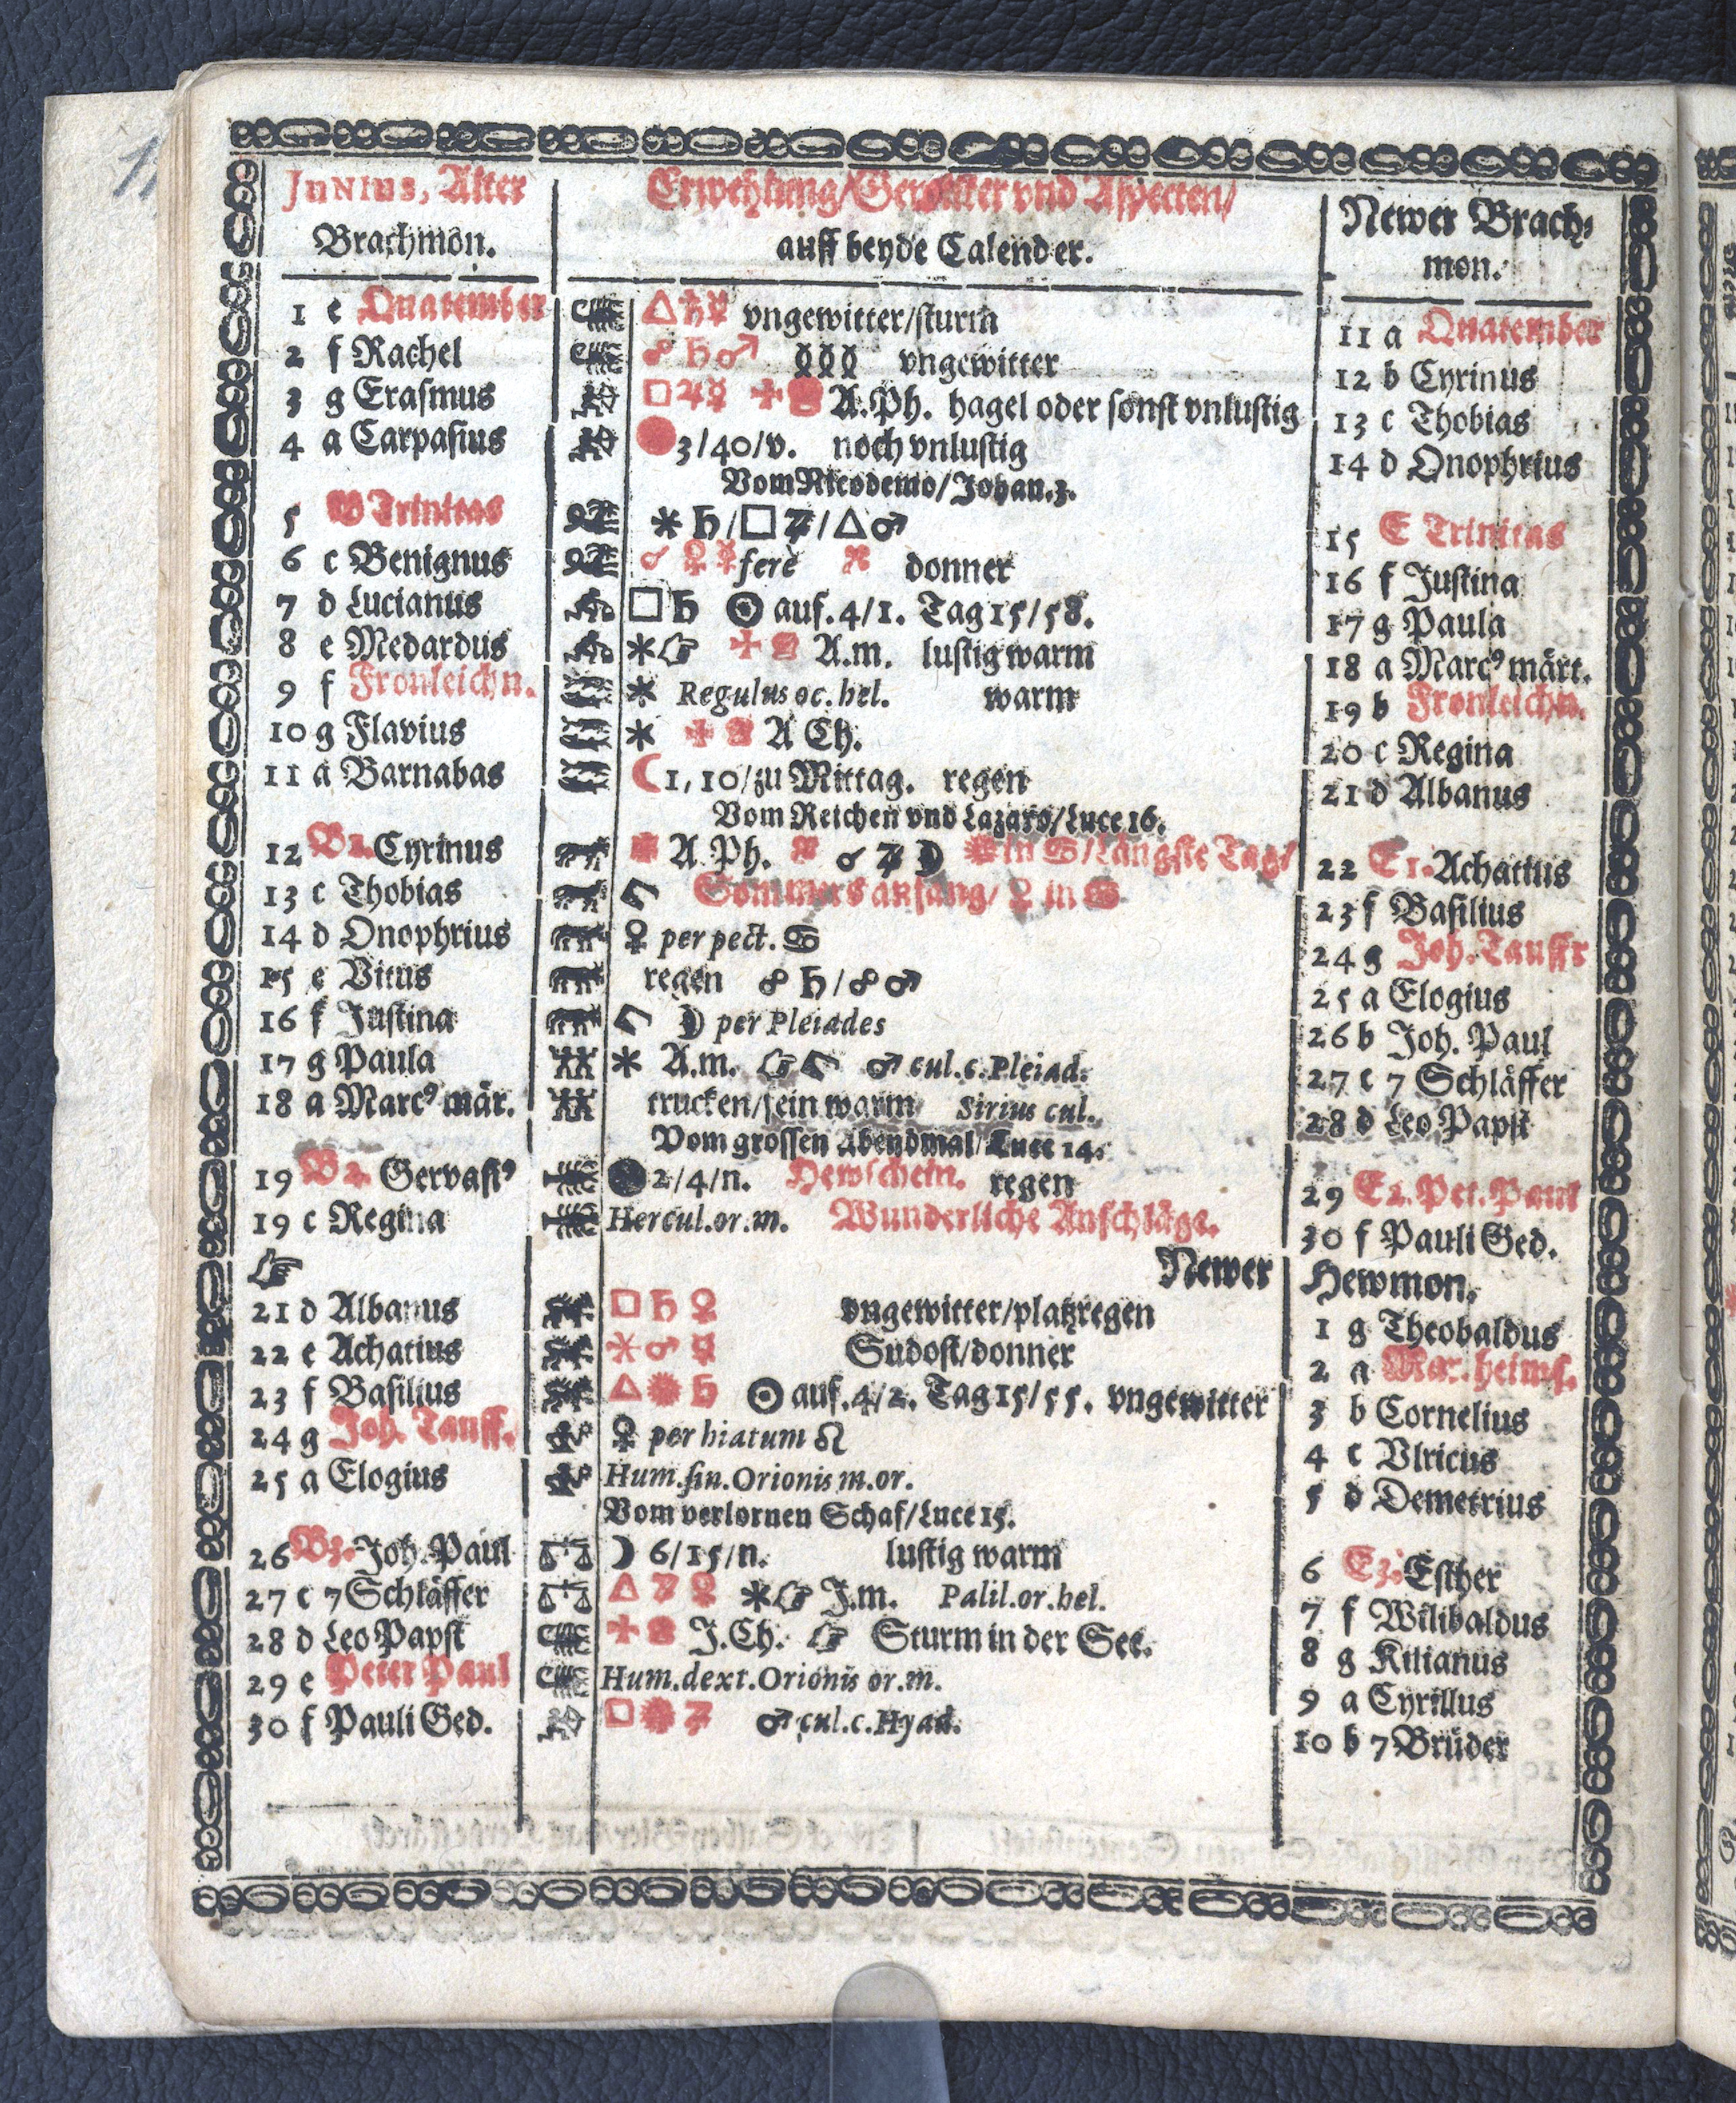 JUNIUS, Alter
Brachmon.
Erwehlung/Gewitter vnd Aspecten/
auff beyde Calender.
Newer Brach-
mon.
1 e Quatember △♄☿ vngewitter/sturm 11 a Quatember
2 f Rachel ☍ ♄♂ vngewitter 12 b Cyrinus
3 g Erasmus □♃☿ A.Ph. hagel oder sonst vnlustig 13 c Thobias
4 a Carpasius 3/40/v. noch vnlustig 14 d Onophrius
Vom Nicodemo/Johan.3.
5 B Trinitas * ♄/□ ♃/△♂ 15 E Trinitas
6 c Benignus ☌ ♀☿ ferè donner 16 f Justina
7 d Lucianus □ ♄ ☉ auf. 4/1. Tag 15/58. 17 g Paula
8 e Medardus *☞ A.m. lustig warm 18 a Marcꝰ märt.
9 f Fronleichn. * Regulus oc. hel. warm 19 b Fronleichn.
10 g Flavius * A Ch. 20 c Regina
11 a Barnabas ☾1, 10/zu Mittag. regen 21 d Albanus
Vom Reichen vnd Lazaro/Luce 16.
12 B1. Cyrinus A.Ph. ☌ ♃ ☽ in ♋/Längste Tag/ 22 E1. Achatius
13 c Thobias Sommers anfang/ ♀ in ♋ 23 f Basilius
14 d Onophrius ♀ per pect. ♋ 24 g Joh. Tauffr
15 e Vitus regen ☍ ♄/☍ ♂ 25 a Elogius
16 f Justina ☽ per Pleiades 26 b Joh. Paul
17 g Paula * A.m. ☞ ♂ cul.c.Pleiad. 27 c 7 Schläffer
18 a Marcꝰ mär. trucken/fein warm Sirius cul. 28 d Leo Papst
Vom grossen Abendmal/Luce 14.
19 B2. Gervasꝰ 2/4/n. Hewschein. regen 29 E2. Pet. Paul
19 c Regina Hercul.or.m. Wunderliche Anschläge. 30 f Pauli Ged.
☞ Newer Hewmon.
21 d Albanus □ ♄ ♀ vngewitter/platzregen 1 g Theobaldus
22 e Achatius * ♂ ☿ Sudost/donner 2 a Mar. heims.
23 f Basilius △ ♄ ☉ auf. 4/2. Tag 15/55. vngewitter 3 b Cornelius
24 g Joh. Tauff. ♀ per hiatum ♌ 4 c Vlricus
25 a Elogius Hum.sin.Orionis m.or. 5 d Demetrius
Vom verlornen Schaf/Luce 15.
26 B3. Joh. Paul ☽ 6/15/n. lustig warm 6 E3. Esther
27 c 7 Schläffer △ ♃ ♀ *☞ J.m. Palil.or.hel. 7 f Wilibaldus
28 d Leo Papst J.Ch. ☞ Sturm in der See. 8 g Kilianus
29 e Peter Paul Hum.dext.Orionis or.m. 9 a Cyrillus
30 f Pauli Ged. □ ♃ ♂ cul.c.Hyad. 10 b 7 Brüder